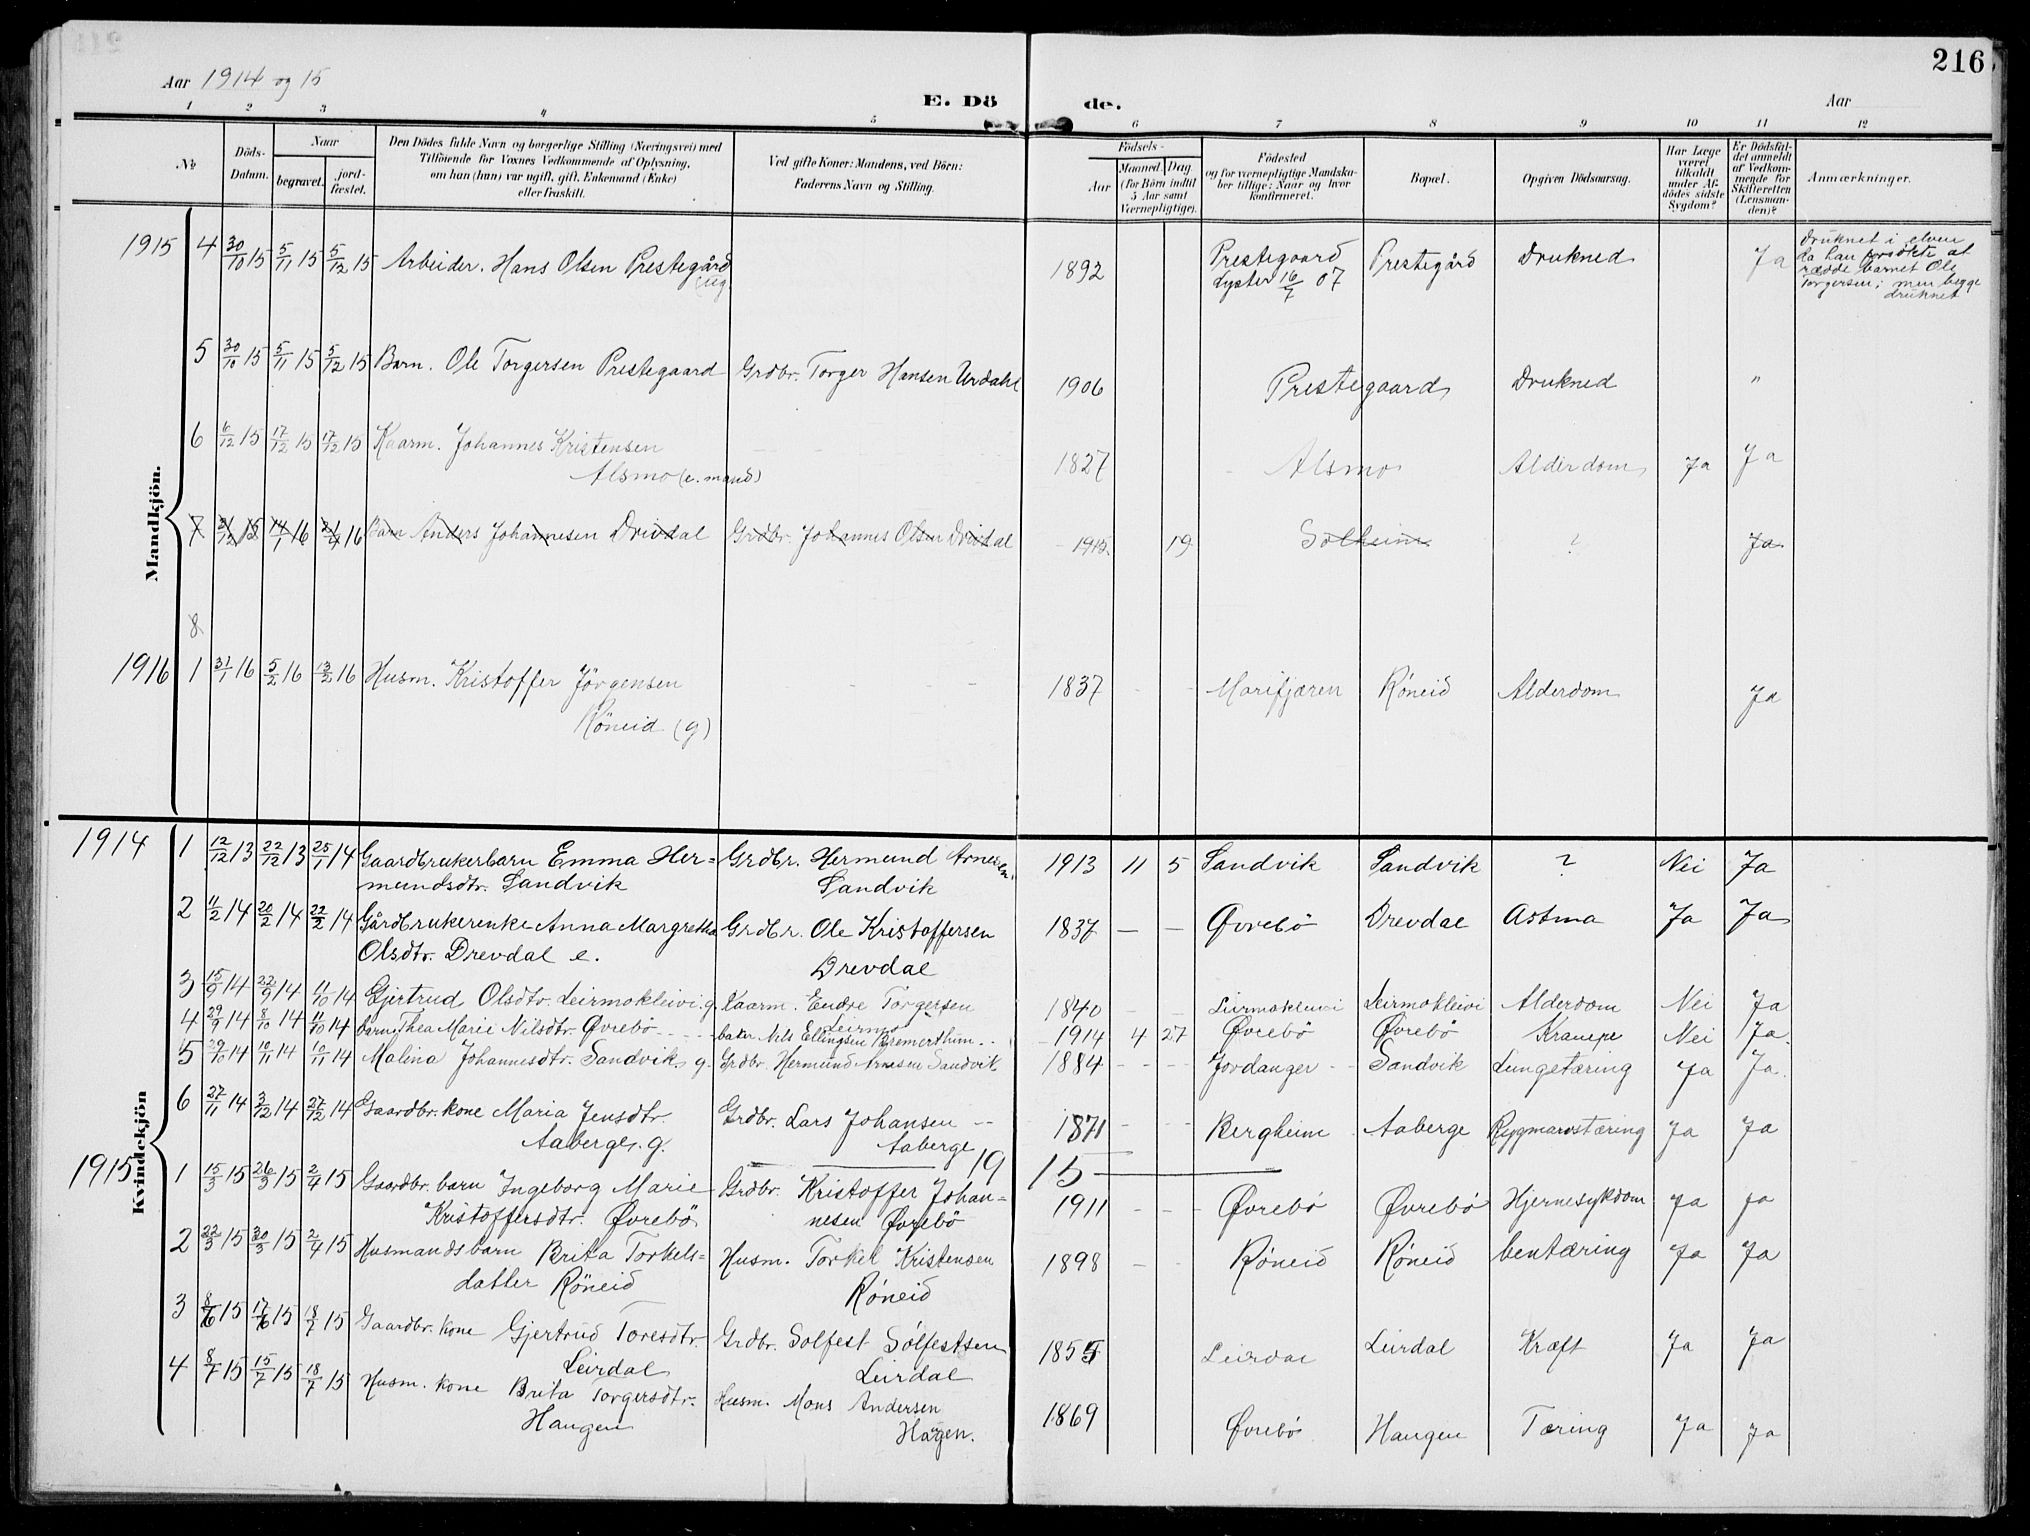 216
Aar 1914 og 15
E. Dö de.
Aar
1 2 3 4 5 6 7 8 9 10 11 12
No
Döds-Datum.
Naar
begravet.
jord-fæstet.
Den Dödes fulde Navn og borgerlige Stilling (Næringsvei) med
Tilföiende for Voxnes Vedkommende af Oplysning,
om han (hun) var ugift, gift, Enkemand (Enke)
eller fraskilt.
Ved gifte Koner: Mandens, ved Börn:
Faderens Navn og Stilling.
Födsels-
Aar
Maaned. Dag.
(for Börn indtil
5 Aar samt
Værnepligtige).
Födested
og for værnepligtige Mandska-
ber tillige: Naar og hvor
konfirmeret.
Bopæl.
Opgiven Dödsaarsag.
Har Læge
været
tilkaldt
under Af-
dödes sidste
Sygdom?
Er Dödsfal-
det anmeldt
af Vedkom-
mende for
Skifteretten
(Lensman-
den)?
Anmærkninger.
Mandkjön.
1915 4 30/10 15 5/11 15 5/12 15 Arbeider. Hans Olsen Prestegård (ug. 1892 Prestegaard Lyster 16/7 07 Prestegård Druknet Ja
druknet i elven
da han forsökte at
rædde barnet Ole
Torgersen; men begge
druknet
5 30/10 15 5/11 15 5/12 15 Barn. Ole Torgersen Prestegaard Grdbr. Torger Hansen Urdahl 1906 Prestegaard Druknet "
6 6/12 15 17/12 15 17/12 15 Kaarm. Johannes Kristensen
Alsmo (e. mand) 1827 Alsmo Alderdom Ja Ja
7 31/12 15 14/1 16 16 Barn Anders Johannesen Drivdal Grdbr. Johannes Olsen Drivdal 1915 19 Solheim ? Ja
8
1916 1 31/1 16 5/2 16 13/2 16 Husm. Kristoffer Jörgensen
Röneid (g) 1837 Marifjæren Röneid Alderdom Ja
Kvindekjön
1914 1 12/12 13 22/12 13 25/1 14 Gaardbrukerbarn Emma Her=
mundsdtr. Sandvik Grdbr. Hermund Arnesen
Sandvik 1913 11 5 Sandvik Sandvik ? Nei Ja
2 11/2 14 20/2 14 22/2 14 Gårdbrukerenke Anna Margretha
Olsdtr. Drevdal e. Grdbr. Ole Kristoffersen
Drevdal 1837 — — Øvrebö Drevdal Astma Ja Ja
3 15/9 14 22/9 14 11/10 14 Gjertrud Olsdtr. Leirmokleivi g. Kaarm. Endre Torgersen
Leirmo 1840 Leirmokleivi Leirmokleivi Alderdom Nei Ja
4 29/9 14 8/10 14 11/10 14 barn Thea Marie Nilsdtr. Øvrebö baker Nils Ellingsen Bremerthun 1914 4 27 Øvrebö Øvrebö Krampe Nei Ja.
5 29/10 14 10/11 14 10/11 14 Malina Johannesdtr. Sandvik g. Grdbr. Hermund Arnesen Sandvik 1884 Jordanger Sandvik Lungetæring Ja Ja.
6 27/11 14 3/12 14 27/12 14 Gaardbr. kone Maria Jensdtr.
Aaberge. g. Grdbr. Lars Johansen
Aaberge 1871 Bergheim Aaberge Rygmarvstæring Ja Ja
1915
1915 1 15/3 15 26/3 15 2/4 15 Gaardbr. barn Ingeborg Marie
Kristoffersdtr. Øvrebö Grdbr. Kristoffer Johan-
nesen Øvrebö 1911 Øvrebö Øvrebö Hjernesykdom Ja Ja
2 22/3 15 30/3 15 2/4 15 Husmandsbarn Brita Torkels=
datter Röneid Husm. Torkel Kristensen
Röneid 1898 Röneid Röneid bentæring Ja Ja
3 8/6 15 17/6 15 18/7 15 Gaardbr. kone Gjertrud Toresdtr.
Leirdal Grdbr. Solfest Sölfestsen
Leirdal 1855 Leirdal Leirdal Kræft Ja Ja
4 8/7 15 15/7 15 18/7 15 Husm. kone Brita Torgersdtr.
Haugen Husm. Mons Andersen
Haugen. 1869 Øvrebö Haugen Tæring Ja Ja